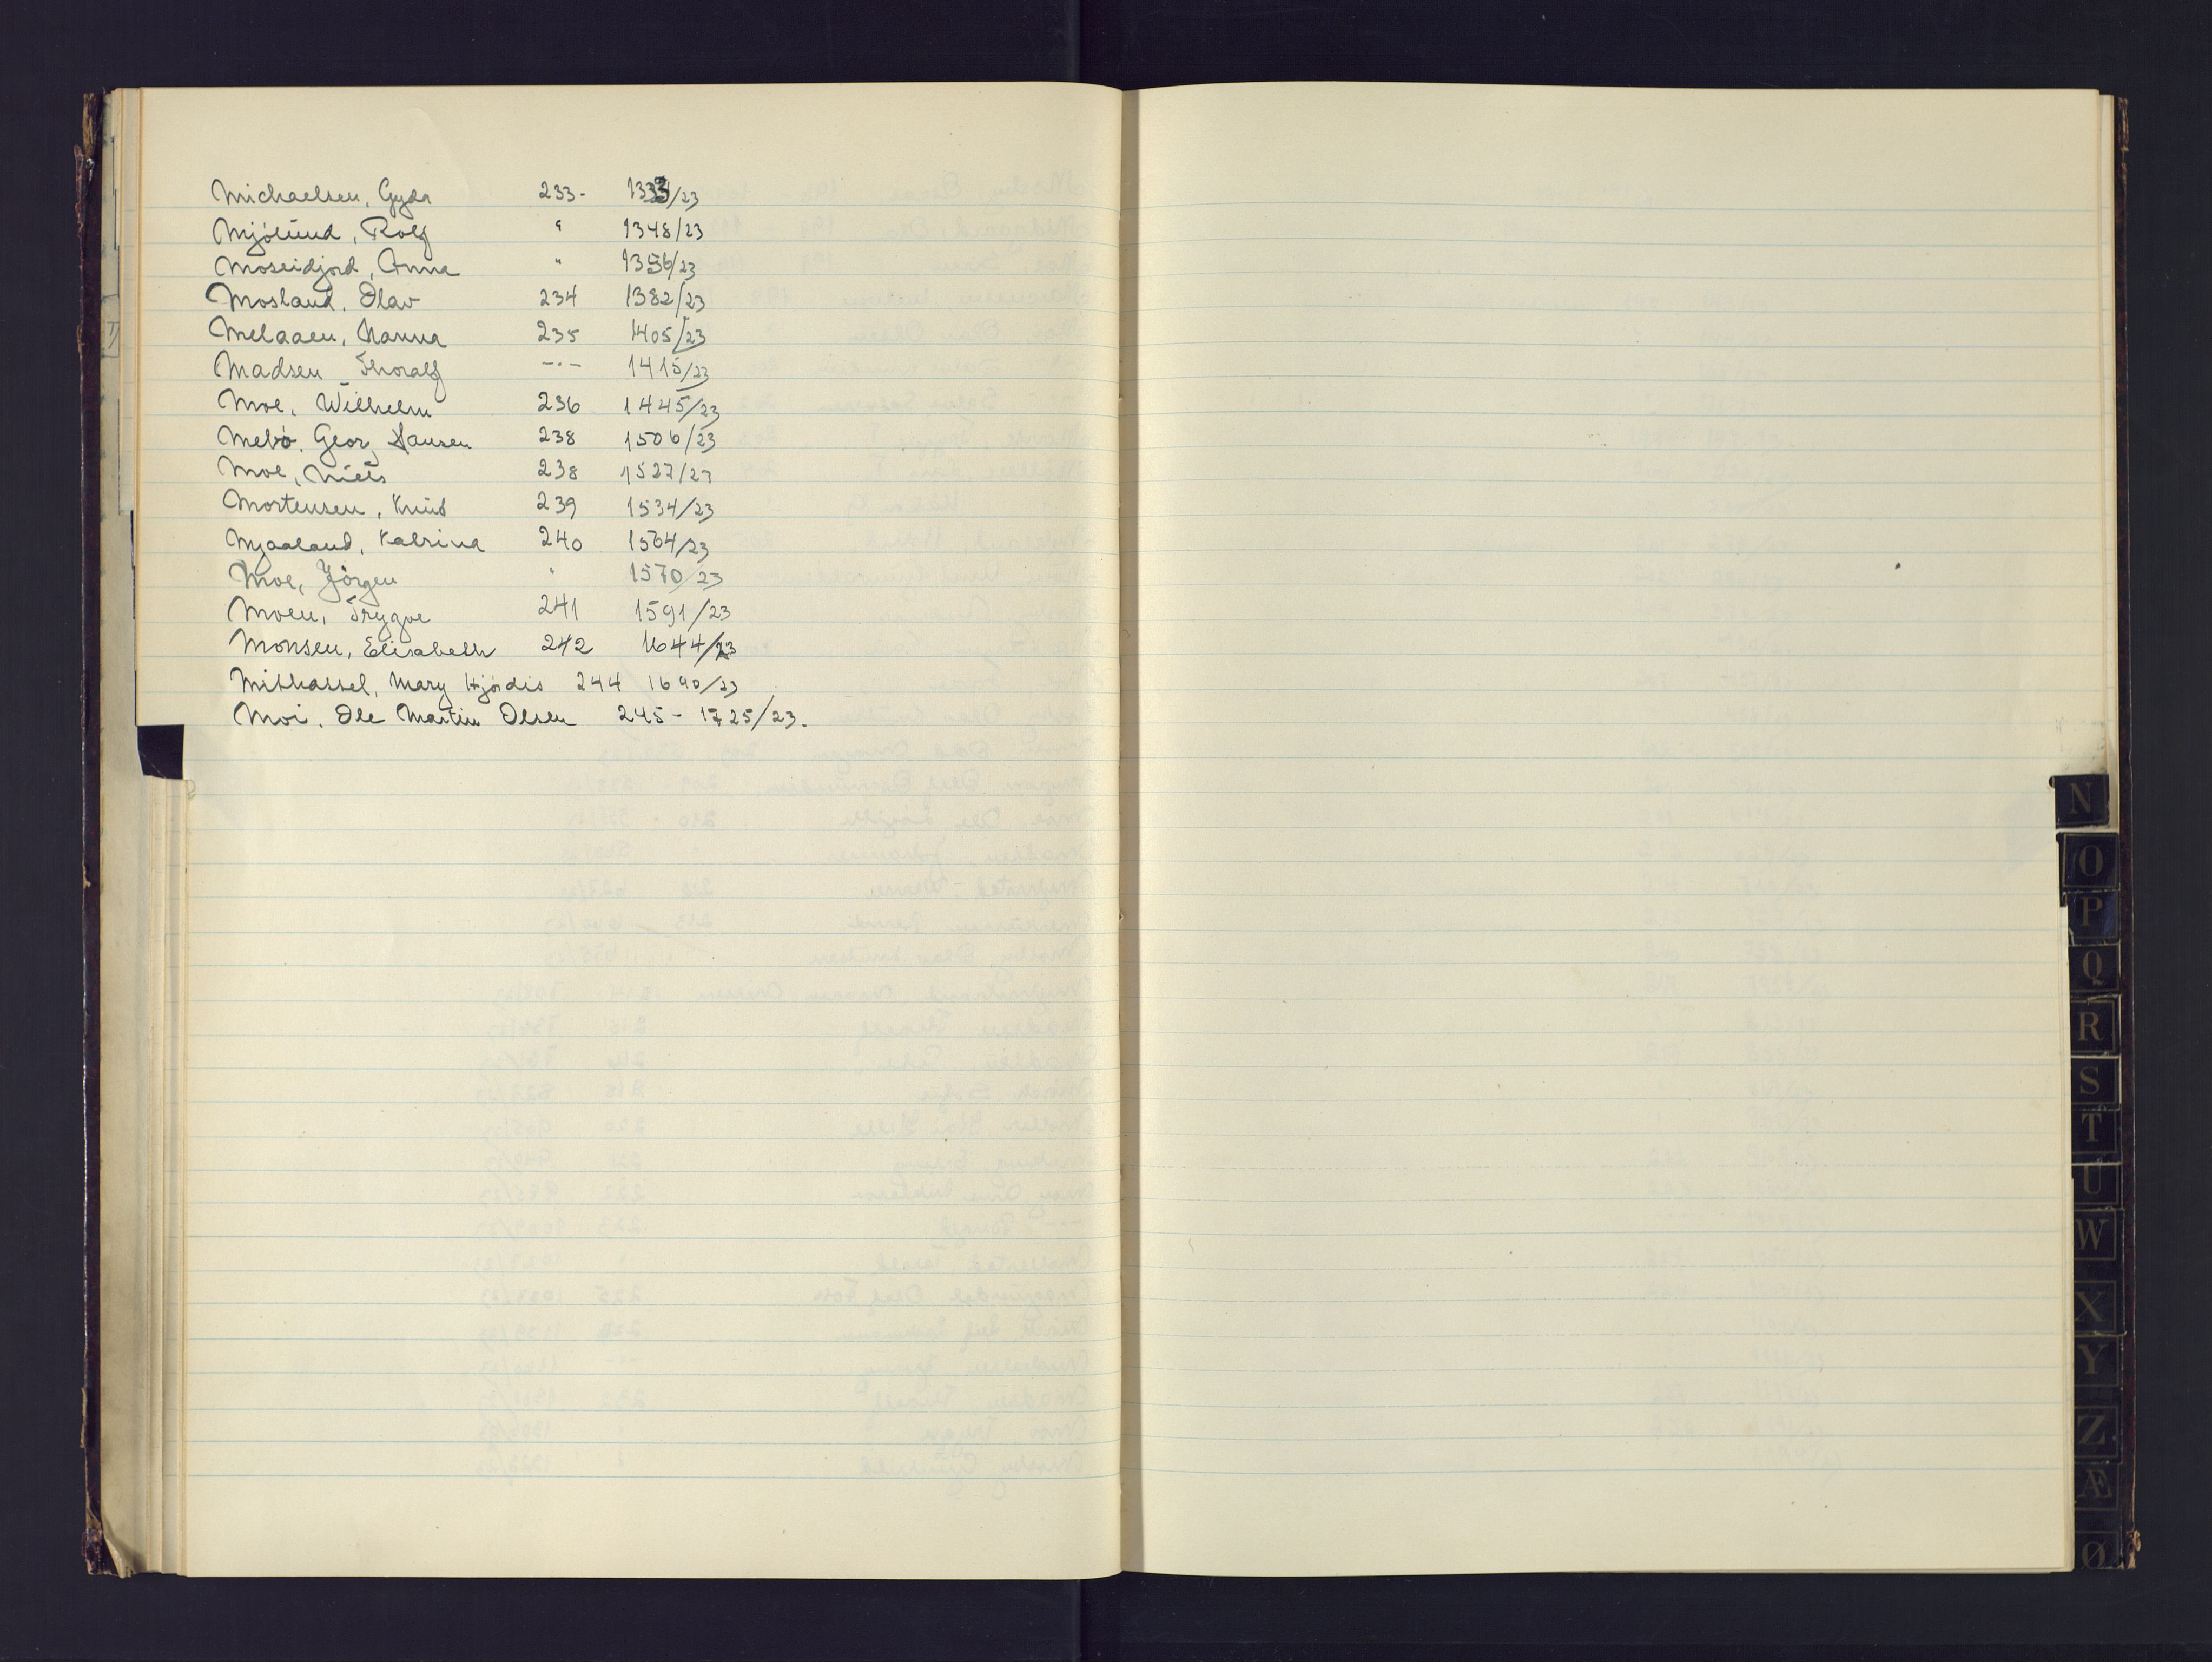 Michaelsen, Gyda 233- 1333/23
Mjölund, Rolf " 1348/23
Moseidjord, Anna " 1356/23
Mosland. Olav 234 1382/23
Melaaen, Hanna 235 1405/23
Madsen Thoralf -"- 1415/23
Moe, Wilhelm 236 1445/23
Mebö. Georg Hansen 238 1506/23
Moe, Niels 238 1527/23
Mortensen, Knud 239 1534/23
Mjaaland, Katrina 240 1564/23
Moe, Jörgen " 1570/23
Moen, Trygve 241 1591/23
Monsen, Elisabeth 242 1644/23
Mithassel, Mary Hjördis 244 1690/23
Moi. Ole Martin Olsen 245- 1725/23.
N
O
P
Q
R
S
T
U
W
X
Y
Z
Æ
Ø